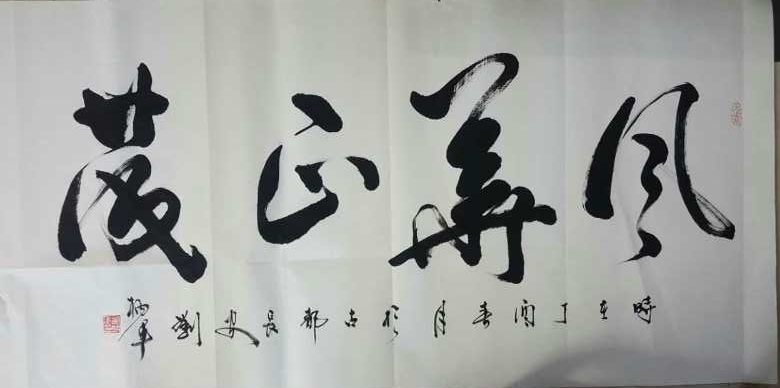 風華正茂
時在丁酉春月於古都長安劉
炳军